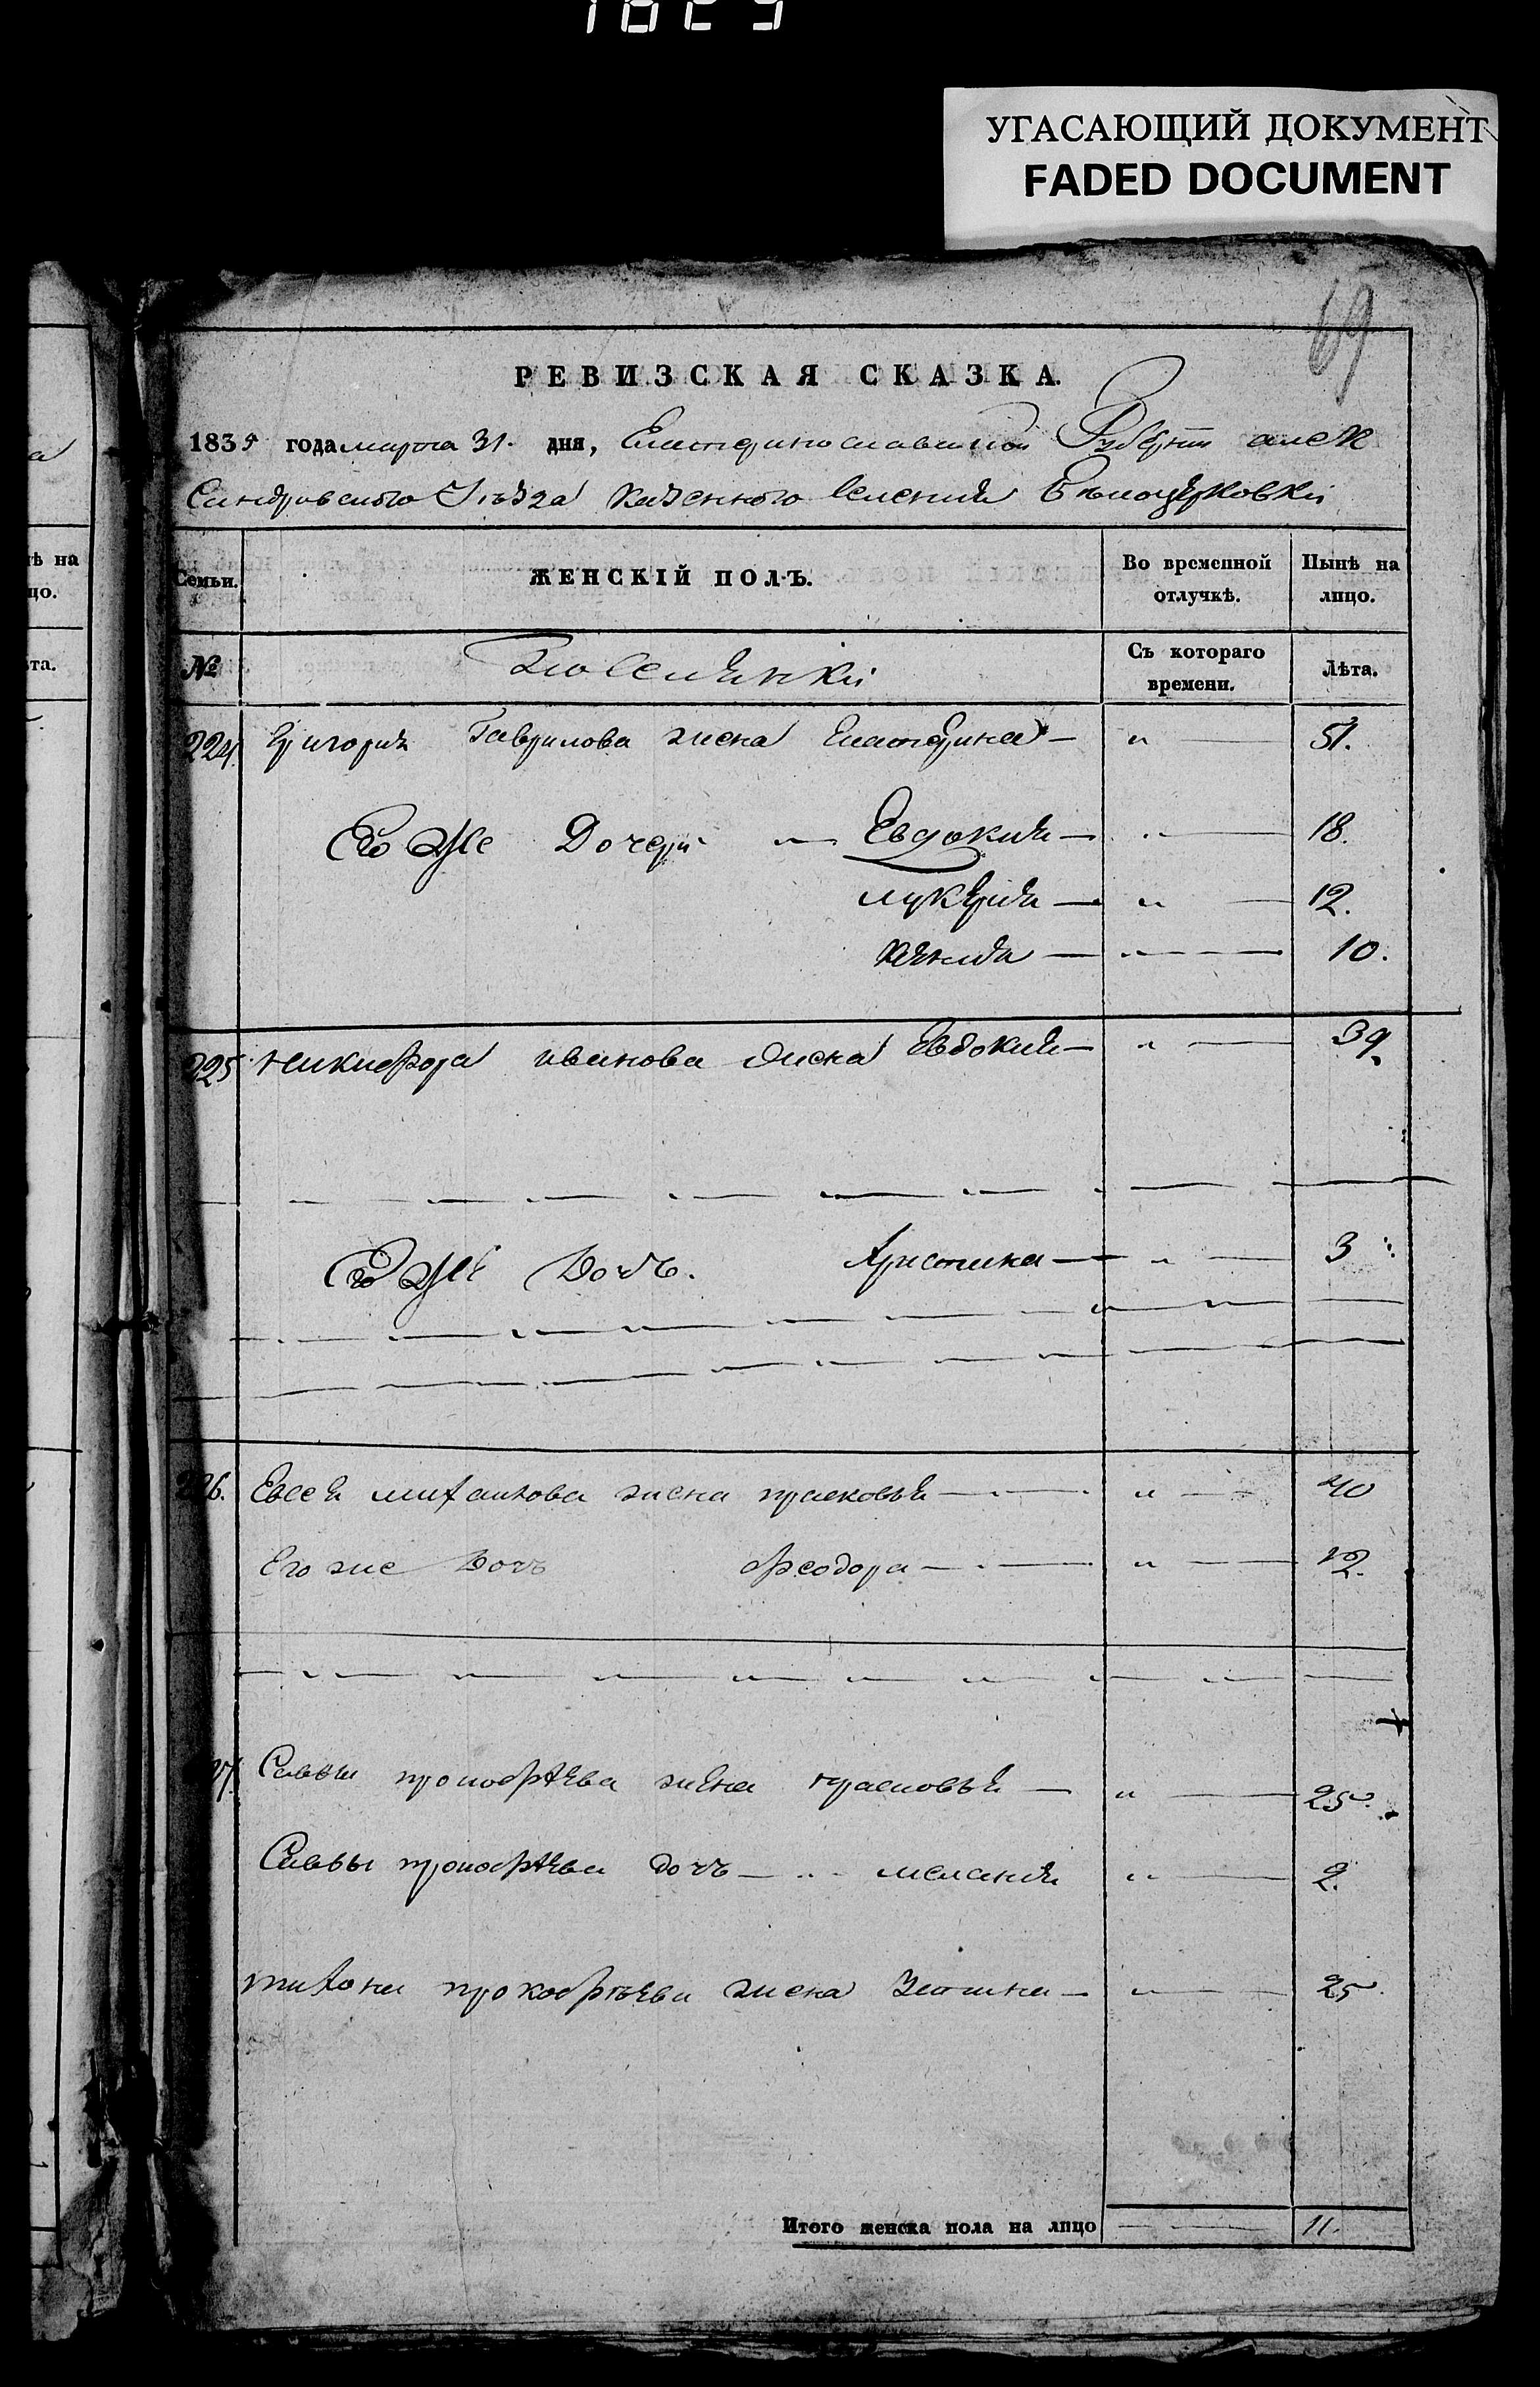 УГАСАЮЩИЙ ДОКУМЕНТ
FADED DOCUMENT
69
РЕВИЗСКАЯ СКАЗКА.
1835 года марта 31. дня, Екатеринославской Губерніи алек
сандровского Уѣзда казенного селенія Бѣлоцерковки
Семьи. ЖЕНСКІЙ ПОЛЪ. Во временной отлучкѣ. Нынѣ на лицо.
№ Поселянки Съ котораго времени. Лѣта.
224. Григорія Гаврилова жена Екатерина — „ 51.
Его же Дочери — Евдокия — „ — 18.
лукерия — „ — 12.
— „ — 10.
225 Никифора иванова жена Евдокия — „ — 39
Его же Дочь. Христина — „ — 3
226. Евсея михаилова жена прасковья — „ — 40
Его же Дочь Феодора — „ — 12.
Саввы прокофьева жена прасковья — „ — 25.
Саввы прокофьева дочь — меланія „ — 2.
тихона прокофьева жена — „ — 25.
Итого женска пола на лицо — 11.